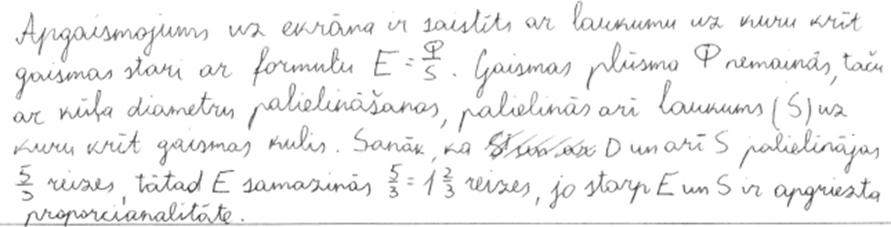 Apgaismojums uz ekrāna ir saistīts ar laukumu uz kuru krīt
gaismas stari ar formulu E = Φ/S. Gaismas plūsma Φ nemainās, taču
ar kūļa diametru palielināšanas, palielinās arī laukums (S) uz
kuru krīt gaismas kulis. Sanāk, ka D un arī S palielinājas
5/3 reizes, tātad E samazinās 5/3 = 1 2/3 reizes, jo starp E un S ir apgriezta
proporcianalitāte.